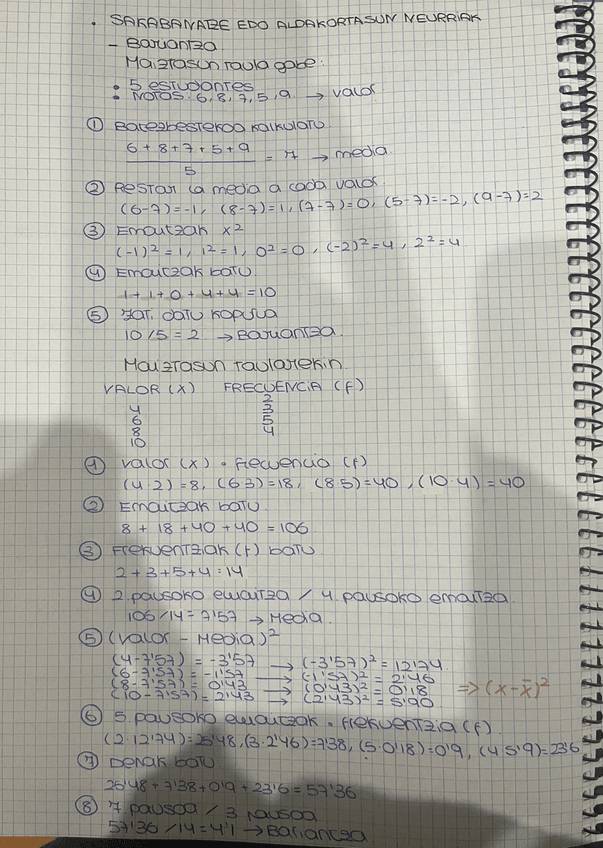 . SAKABANATZE EDO ALDAKORTASUN NEURRIAK
- Bariantza.
Maiztasun taula gabe:
: 5 estudiantes
: Notas: 6, 8, 7, 5, 9. → valor
① Batezbestekoa kalkulatu
6 + 8 + 7 + 5 + 9 / 5 = 7 → media.
② Restar la media a cada valor.
(6-7)=-1, (8-7)=1, (7-7)=0, (5-7)=-2, (9-7)=2
③ Emaitzak x²
(-1)²=1, 1²=1, 0²=0, (-2)²=4, 2²=4
④ Emaitzak batu.
1+1+0+4+4=10
⑤ Zati datu kopurua
10/5=2 → Bariantza.
Maiztasun taularekin.
VALOR (X) FRECUENCIA (f)
4 2
6 3
8 5
10 4
① Valor (x) · Frecuencia (f)
(4·2)=8, (6·3)=18, (8·5)=40, (10·4)=40
② Emaitzak batu.
8 + 18 + 40 + 40 = 106
③ Frekuentziak (f) batu
2+3+5+4=14
④ 2. pausoko emaitza / 4. pausoko emaitza.
106/14=7'57 → Media.
⑤ (Valor - Media)²
(4-7'57) = -3'57 → (-3'57)² = 12'74.
(6-7'57) = -1'57 → (-1'57)² = 2'46
(8-7'57) = 0'43 → (0'43)² = 0'18 ⇒ (x-x̄)²
(10-7'57) = 2'43 → (2'43)² = 5'90
⑥ 5. pausoko emaitzak · frekuentzia (f)
(2·12'74)=25'48, (3·2'46)=7'38, (5·0'18)=0'9, (4·5'9)=23'6
⑦ Denak batu
25'48+7'38+0'9+23'6=57'36.
⑧ 7 pausoa / 3 pausoa.
57'36/14=4'1 → Bariantza